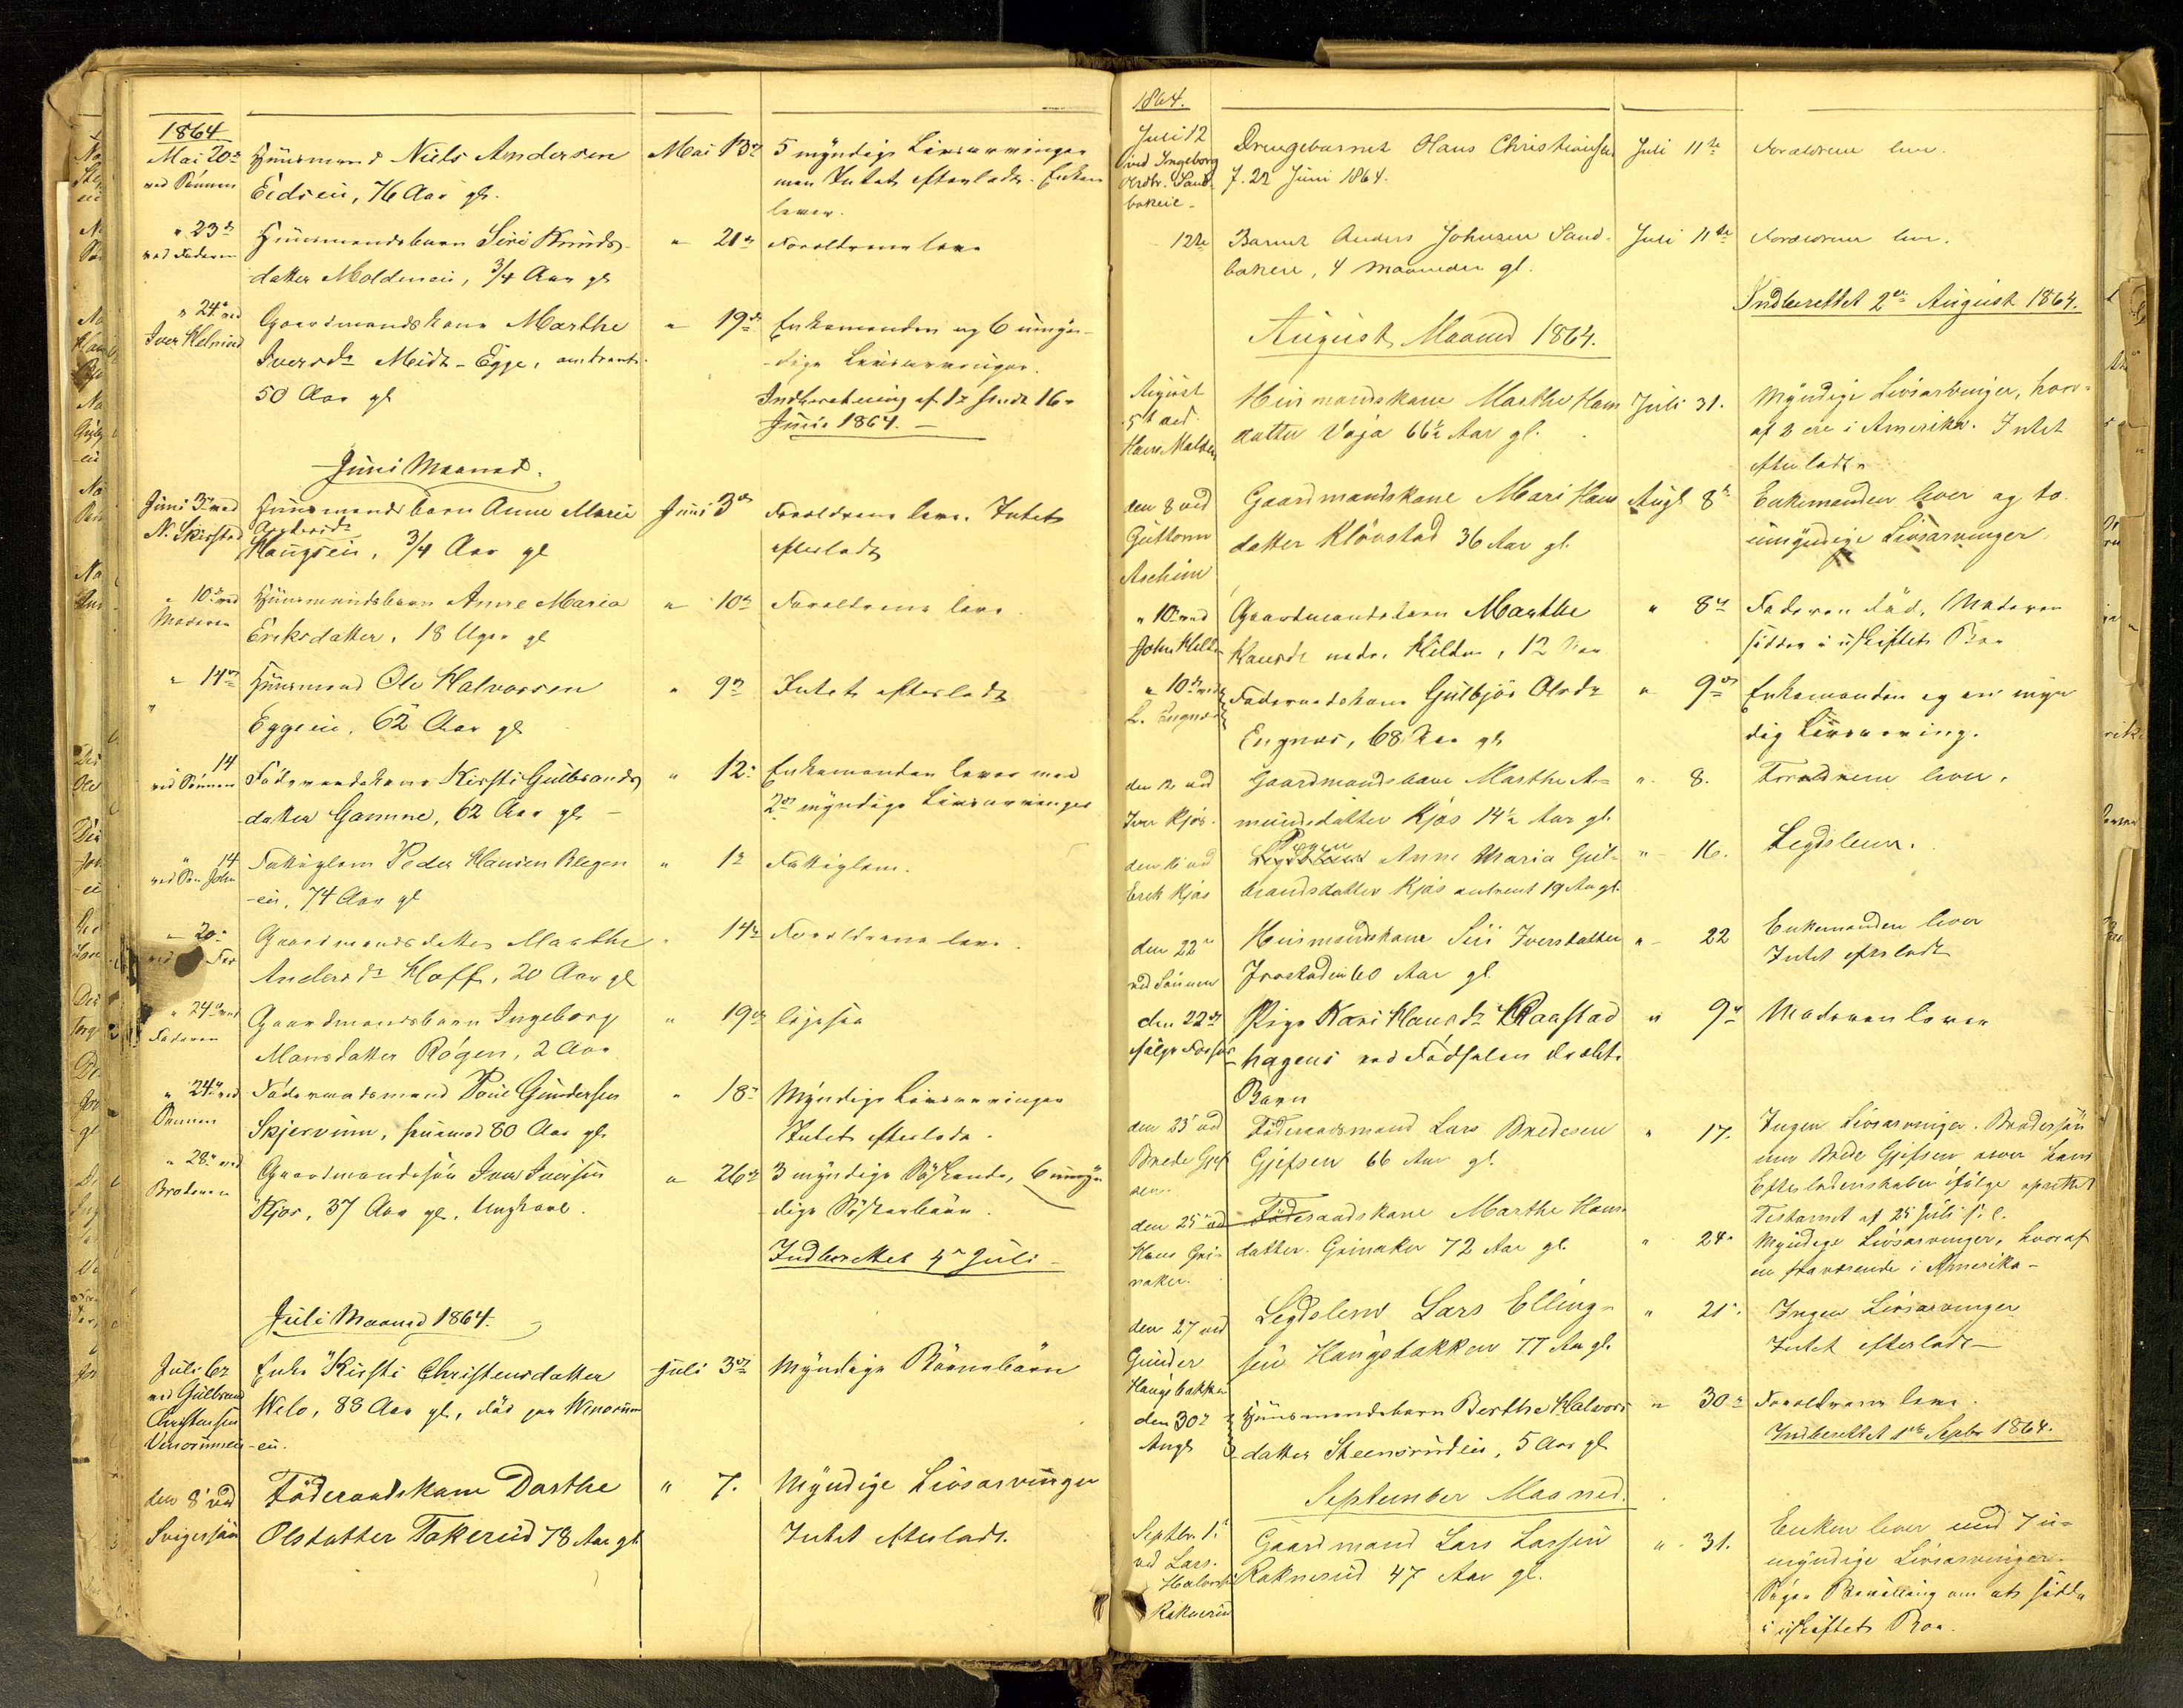 1864
Mai 20de
ved Sønnen
Huusmand Niels Andersen
Eidseie, 76 Aar gl.
Mai 13de
5 myndige Livsarvinger
men Intet efterladt. Enken
lever.
" 23de
ved Faderen
Huusmandsbarn Siri Knuds-
datter Moldeneie, 3/4 Aar gl
" 21de
Forældrene leve
" 24de ved
Iver Helmeid
Gaardmandskone Marthe
Iversdr Meidt-Egge, omtrent
50 Aar gl
" 19de
Enkemanden og 6 umyn-
dige Livsarvinger.
Indberetning af 1ste sendt 16de
Juni 1864. —
Juni Maaned.
Juni 3de ved
N. Skirstad
Huusmandsbarn Anne Marie
Haugseie, 3/4 Aar gl
Juni 3de
Forældrene leve. Intet
efterladt
" 10de ved
Moderen
Huusmandsbarn Anne Maria
Eriksdatter, 18 Uger gl
" 10de
Forældrene leve.
" 14de
"
Huusmand Ole Halvorsen
Eggeeie, 62 Aar gl
" 9de
Intet efterladt
14
ved Sønnen
Føderaadskone Kirsti Gulbrands
datter Gamme, 62 Aar gl —
" 12te
Enkemanden lever med
2de myndige Livsarvinger
" 14
ved Søn John
Fattiglem Peder Hansen Blegen
-eie, 74 Aar gl
" 1ste
Fattiglem.
" 20de
ved Far
Gaardmandsdatter Marthe
Andersdr Hoff, 20 Aar gl
" 14de
Forældrene leve.
" 24de ved
Faderen
Gaardmandsbarn Ingeborg
Monsdatter Rögen, 2 Aar
" 19de
ligesaa
" 24de ved
Sønnen
Föderaadsmand Poul Gundersen
Skjervum, henimod 80 Aar gl
" 18de
Myndige Livsarvinger
Intet efterladt.
" 28de ved
Broderen
Gaardmandssøn Iver Iversen
Kjos, 37 Aar gl, Ungkarl.
" 26de
3 myndige Söskende, 6 umyn
dige Söskenbörn.
Indberettet 4de Juli —
Juli Maaned 1864.
Juli 6te
ved Gulbrand
Christensen
Enke Kirsti Christensdatter
Welo, 88 Aar gl, död paa
-eie.
Juli 3de
Myndige Börnebörn
den 8de ved
Svigersøn
Föderaadskone Dorthe
Olsdatter Takerud 78 Aar gl.
" 7.
Myndige Livsarvinger
Intet efterladt.
1864.
Juli 12
ved Ingeborg
Drengebarnet Hans Christiansen
f. 22 Juni 1864.
Juli 11te
Forældrene leve.
12te
Barnet Anders Johnsen Sand-
bakeie, 4 Maaneder gl.
Juli 11te
Forældrene leve.
Indberettet 2den August 1864.
August Maaned 1864.
August
5te ved
Huusmandskone Marthe Hans
datter Vøja 66½ Aar gl.
Juli 31.
Myndige Livsarvinger, hvor-
af 2 ere i Amerika. Intet
efterladt
den 8 ved
Guttorm
Aschim
Gaardmandskone Mari Hans
datter Klövstad 36 Aar gl.
Augt 8de
Enkemanden lever og to
umyndige Livsarvinger
" 10de ved
John Hilden
Gaardmandsbarn Marthe
Hansdr nedre Hilden, 12 Aar
" 8de
Faderen död, Moderen
sidder i uskiftet Bo
" 10de ved
L. Engnæs
Föderaadskone Gulbjör Olsdr
Engnæs, 68 Aar gl
" 9de
Enkemanden og en myn
dig Livsarving.
den 12 ved
Iver Kjos.
Gaardmandsbarn Marthe A-
mundsdatter Kjos 14½ Aar gl.
" 8.
Forældrene lever.
den 16 ved
Erik Kjos
Pigen
Anne Maria Gul-
brandsdatter Kjos omtrent 19 Aar gl.
" 16.
Legdslem.
den 22de
ved Sønnen
Huusmandskone Siri Iversdatter
60 Aar gl.
" 22
Enkemanden lever
Intet efterladt
den 22de
ifølge
Pige Kari Hansdr Kraastad
hagens ved Fødselen
Barn
" 9de
Moderen lever
den 25de ved
Brede Gjef
sen.
Föderaadsmand Lars Bredesen
Gjefsen 66 Aar gl.
" 17.
Ingen Livsarvinger. Brodersøn
nen Brede Gjefsen arver hans
Efterladenskaber ifølge oprettet
Testament af 25 Juli s. A.
den 25de ved
Hans Gri-
naker.
Föderaadskone Marthe Hans-
datter Grinaker 72 Aar gl.
" 24.
Myndige Livsarvinger, hvoraf
en fraværende i Amerika —
den 27 ved
Gunder
Haugsbakken
Legdslem Lars Elling-
sen Haugsbakken 77 Aar gl.
" 21.
Ingen Livsarvinger
Intet efterladt —
den 30de
Augt
Huusmandsbarn Berthe Halvors
datter Steensrudeie, 5 Aar gl
" 30de
Forældrene leve.
Indberettet 1ste Septbr 1864.
September Maaned.
Septbr. 1.
ved Lars
Halvors
Raknerud
Gaardmand Lars Larsen
Raknerud 47 Aar gl.
" 31.
Enken lever med 7 u-
myndige Livsarvinger.
Söger Bevilling om at sidde
i uskiftet Boe.